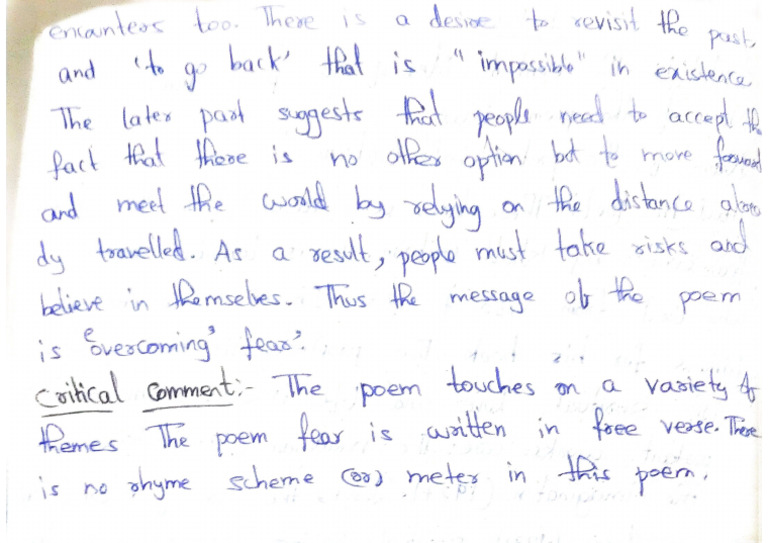 encounters too. There is a desire to revisit the past,
and 'to go back' that is "impossible" in existence
The later part suggests that people need to accept the
fact that there is no other option but to move forward
and meet the world by relying on the distance alrea
dy travelled. As a result, people must take risks and
believe in themselves. Thus the message of the poem
is 'overcoming' fear'.
Critical Comment:- The poem touches on a variety of
themes The poem fear is written in free verse. There
is no rhyme scheme (or) meter in this poem.